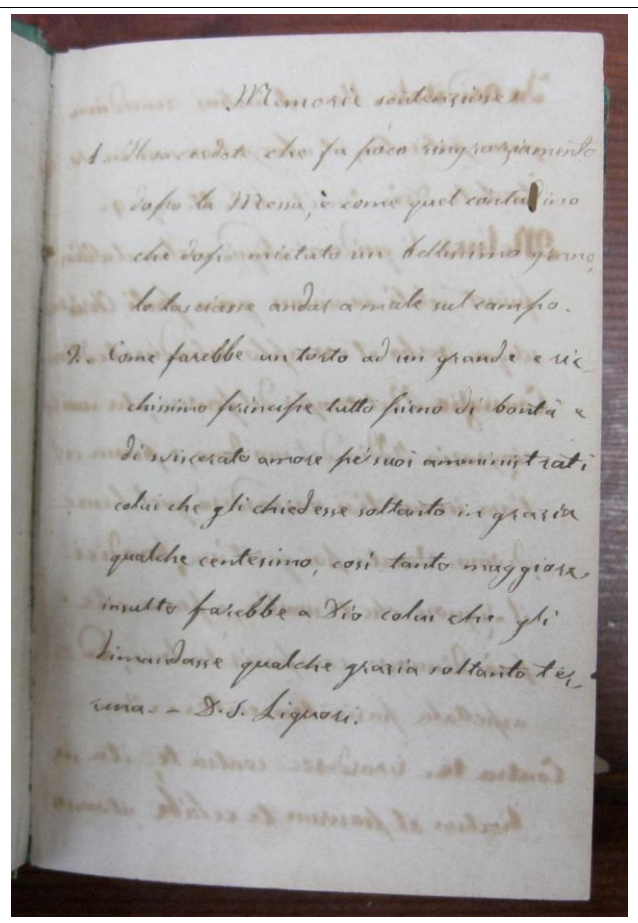 Memorie sentenziose
1. Il sacerdote che fa poco ringraziamento
dopo la Messa, è come quel contadino
che dopo mietuto un bellissimo grano,
lo lasciasse andar a male sul campo.
2. Come farebbe un torto ad un grande e ric-
chissimo principe tutto pieno di bontà e
di sviscerato amore pe' suoi amministrati
colui che gli chiedesse soltanto in grazia
qualche centesimo, così tanto maggiore
insulto farebbe a Dio colui che gli
dimandasse qualche grazia soltanto ter-
rena. - D. S. Liguori.